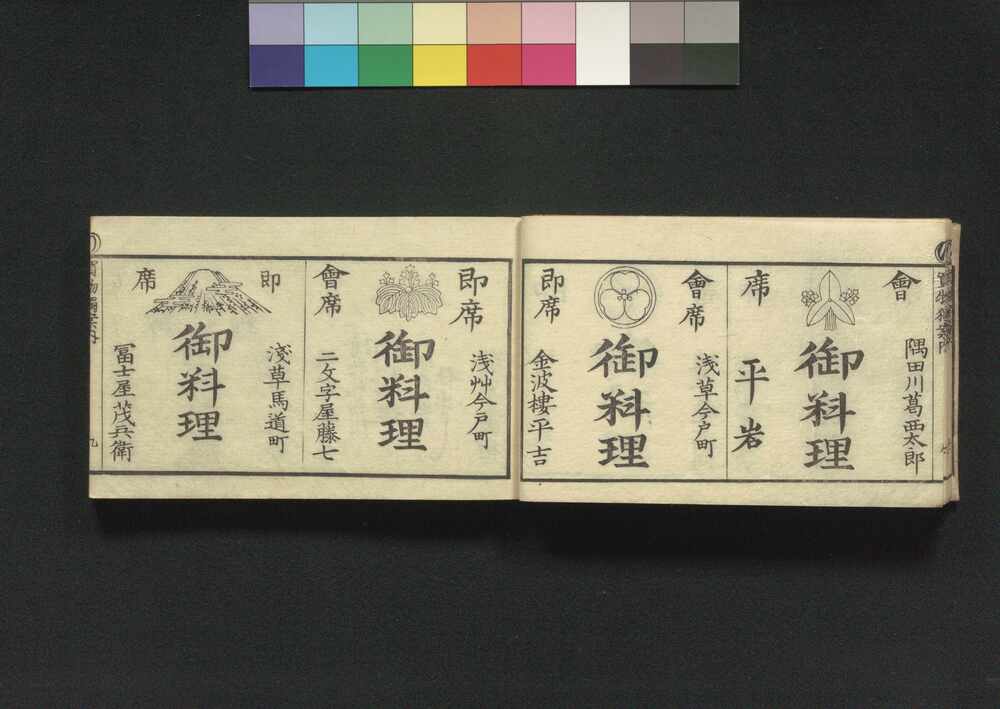 會席
隅田川葛西太郎
御料理
平岩
會席
浅草今戸町
御料理
即席
金波樓平吉
即席
浅艸今戸町
御料理
會席
二文字屋藤七
即席
淺草馬道町
御料理
冨士屋茂兵衛
九